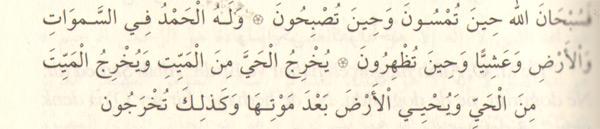 فَسُبْحَانَ الله حِينَ تُمْسُونَ وَحِينَ تُصْبِحُونَ ۞ وَلَهُ الْحَمْدُ فِي السَّمٰوَاتِ
وَالْأَرْضِ وَعَشِيًّا وَحِينَ تُظْهِرُونَ ۞ يُخْرِجُ الْحَيَّ مِنَ الْمَيِّتِ وَيُخْرِجُ الْمَيِّتَ
مِنَ الْحَيِّ وَيُحْيِي الْأَرْضَ بَعْدَ مَوْتِهَا وَكَذٰلِكَ تُخْرَجُون